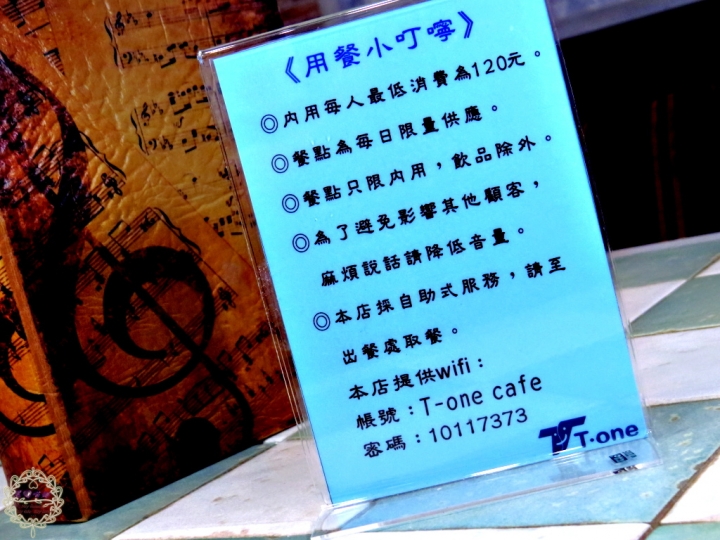 《用餐小叮嚀》
◎內用每人最低消費為120元。
◎餐點為每日限量供應。
◎餐點只限內用，飲品除外。
◎為了避免影響其他顧客，
麻煩說話請降低音量。
◎本店採自助式服務，請至
出餐處取餐。
本店提供wifi：
帳號：T-one cafe
密碼：10117373
T·one